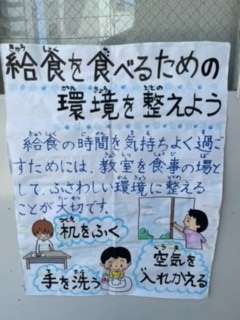 給食を食べるための
環境を整えよう
給食の時間を気持ちよく過ご
すためには、教室を食事の場と
して、ふさわしい環境に整える
ことが大切です。
机をふく
空気を
入れかえる
手を洗う